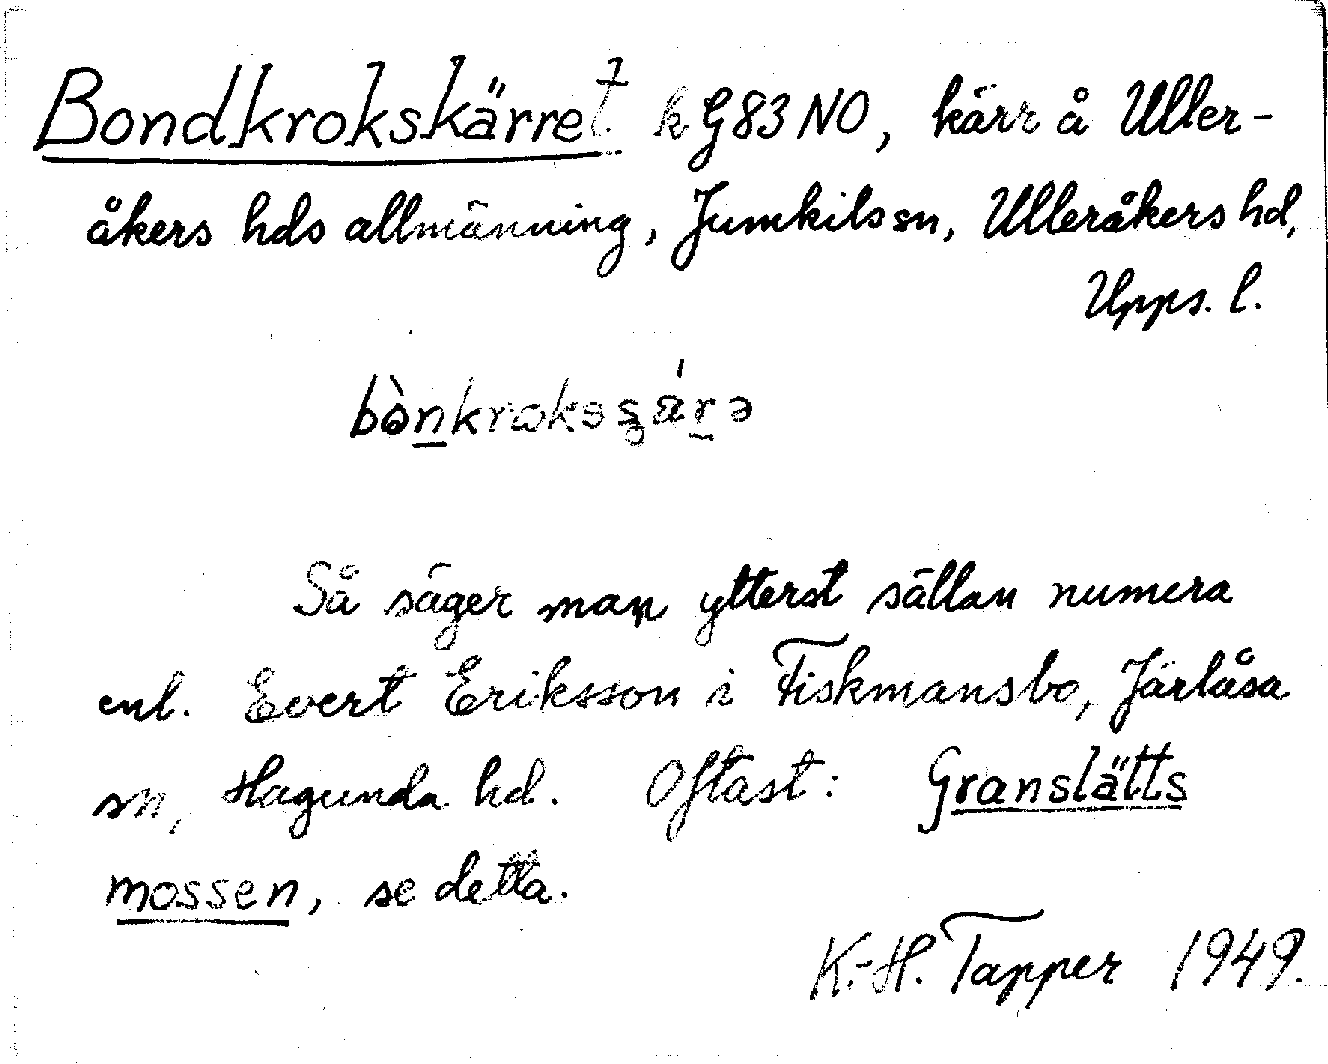 Bondkrokskärret k G83 NO, kärr å Uller-
åkers hds allmänning, Jumkils sn, Ulleråkers hd,
Upps. l.
Så säger man ytterst sällan numera
enl. Evert Eriksson i Fiskmansbo, Järlåsa
sn, Hagunda hd. Oftast: Granslätts
mossen, se detta.
K.-H. Tapper 1949.